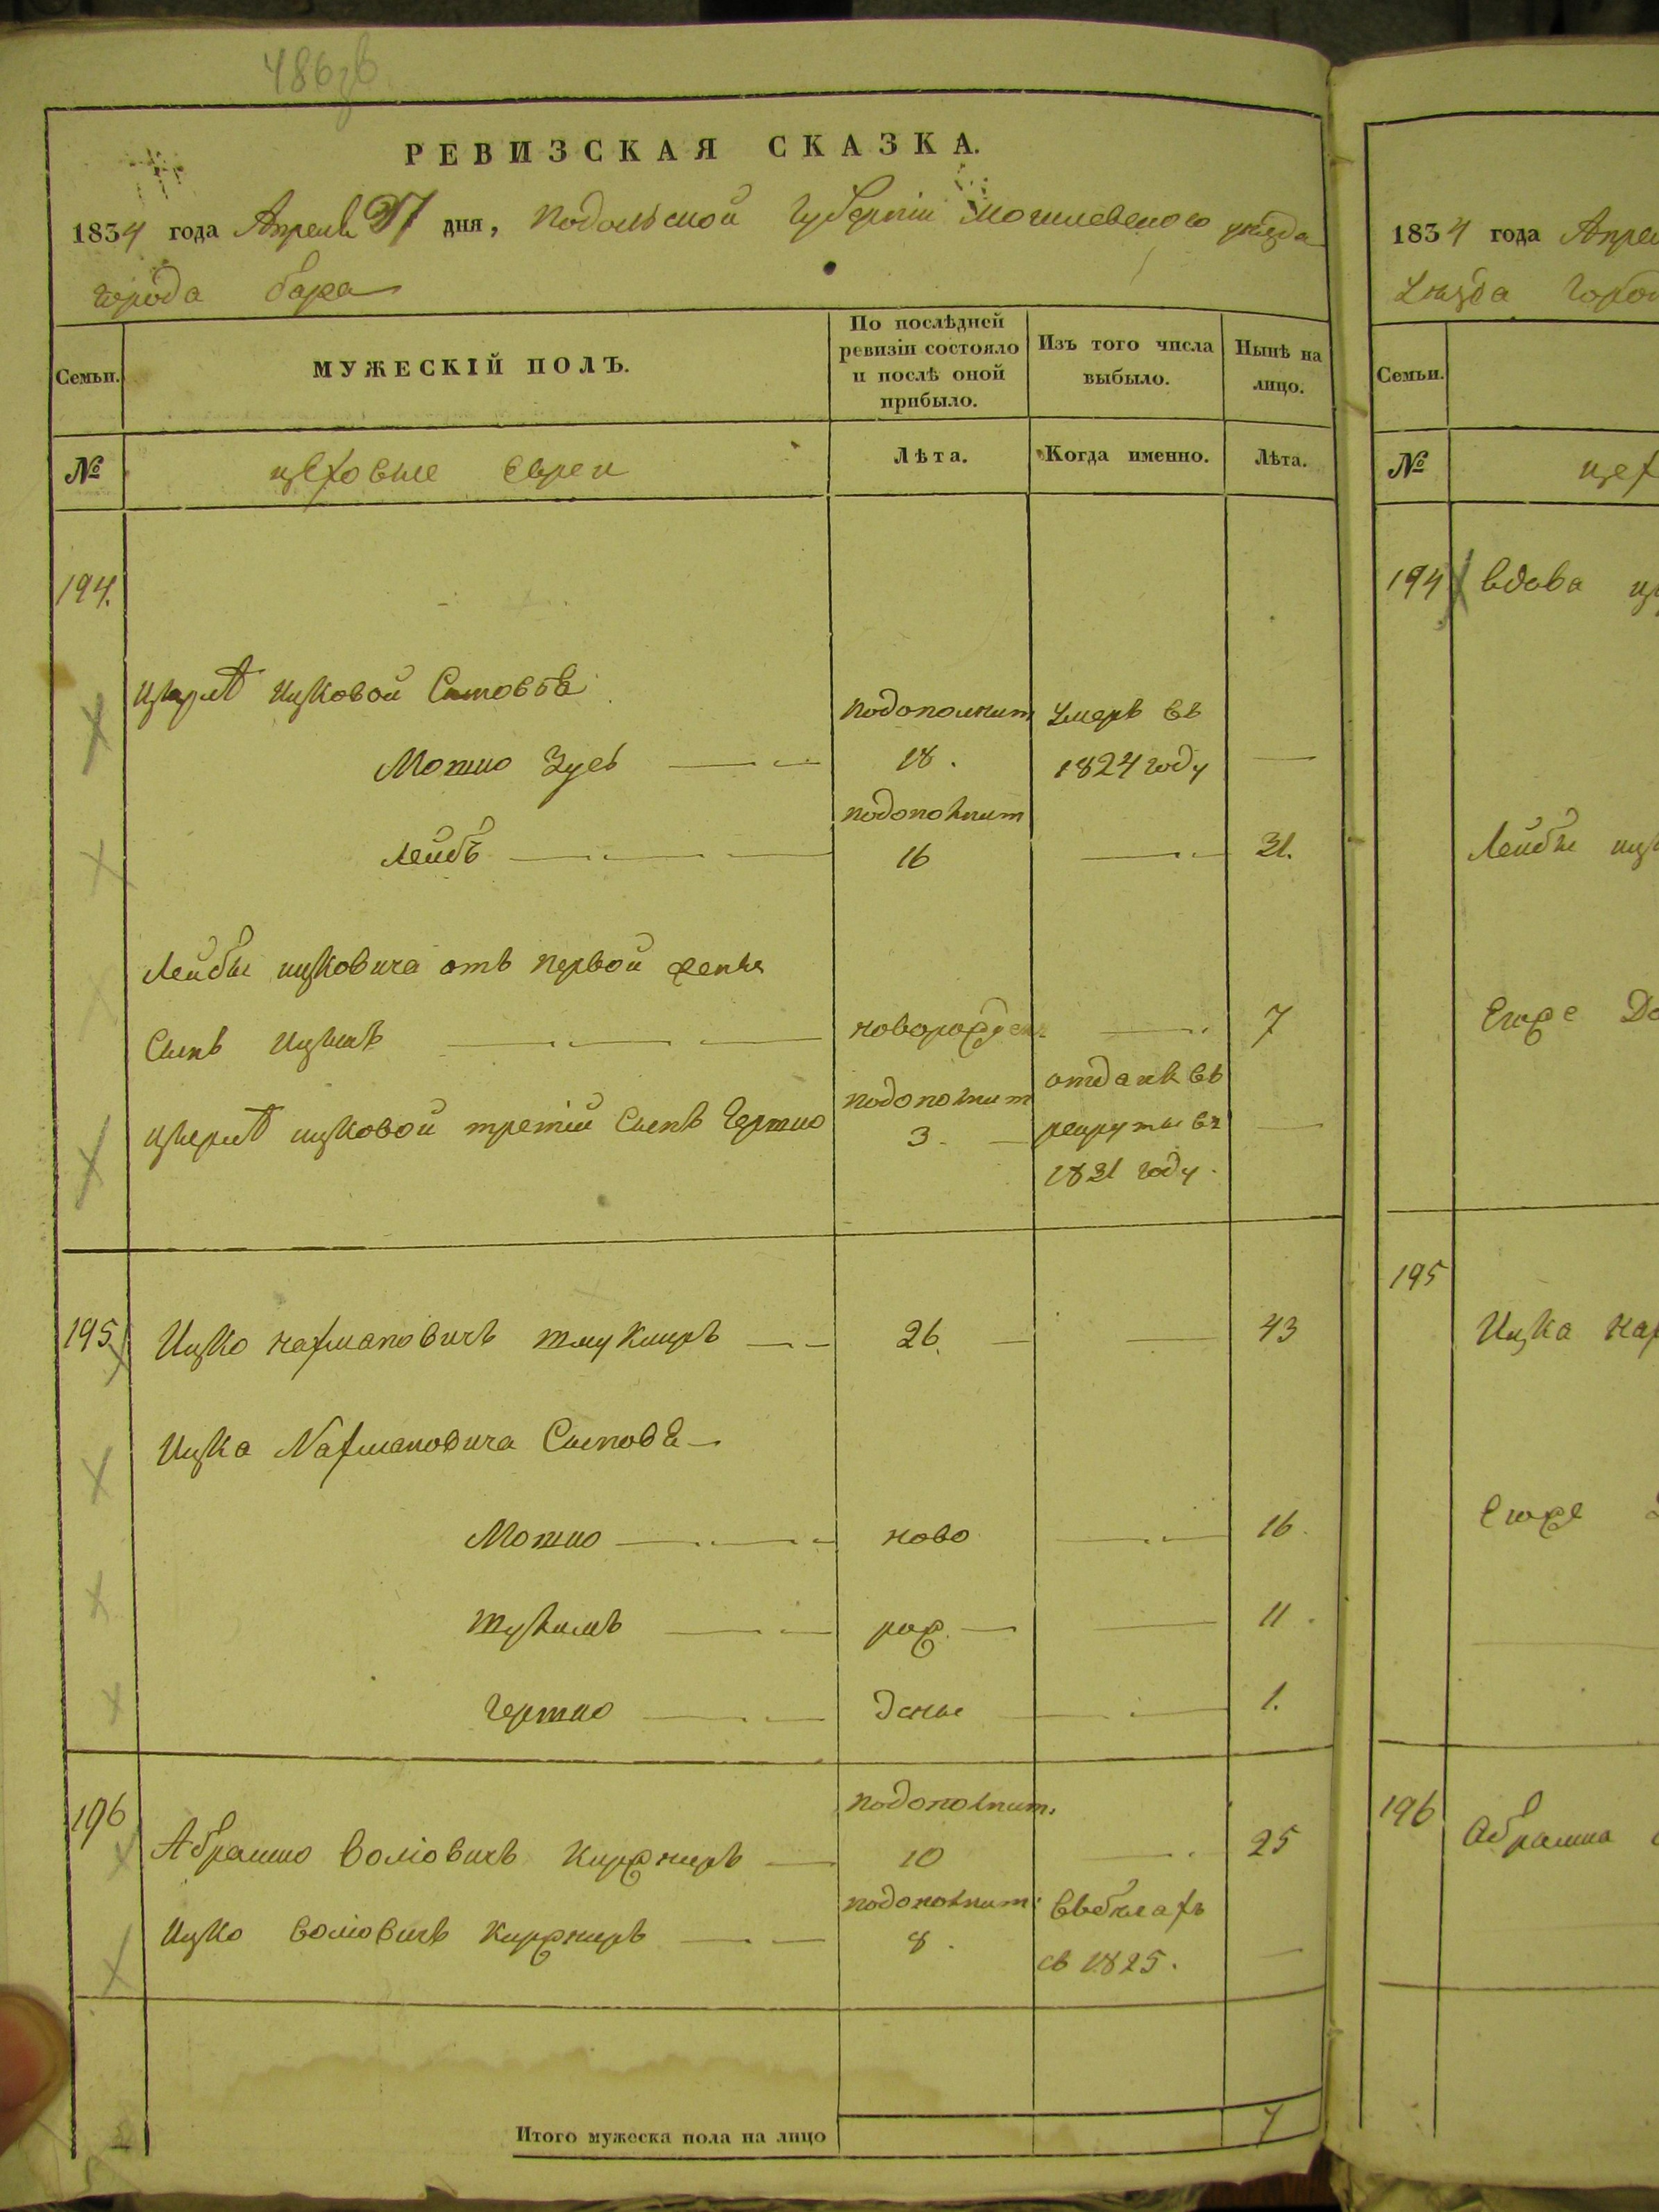 486зв
РЕВИЗСКАЯ СКАЗКА.
1834 года Апреля 27 дня, Подольской Губерніи Могилевского уезда
города бара
Семьи.
МУЖЕСКІЙ ПОЛЪ.
По послѣдней ревизіи состояло и послѣ оной прибыло.
Изъ того числа выбыло.
Нынѣ на лицо.
№
цеховые Евреи
Лѣта.
Когда именно.
Лѣта.
194.
ицковой Сыновья
подополнит Умеръ въ
Мошко Зусь 18. 1824 году
подополнит
Лейбъ 16 31.
Лейбы ицковича отъ первой жены
Сынъ новорожден. 7
ицковой третій Сынъ Гершко подополнит 3. отданъ въ рекруты въ 1831 году.
195 Ицко нахмановичъ 26. 43
Ицка Нахмановича Сыновья
Мошко ново 16.
рож 11.
Гершко денные 1.
196 подополнит.
Абрамко Волковичъ Киржниръ 10 25
подополнит:
Ицко Волковичъ Киржниръ 8. въ бегахъ
съ 1825.
Итого мужеска пола на лицо 7
1834 года Апрел
Уезда Город
Семьи.
№ цех
194 вдова
Лейбы ицк
Егоже До
195
Ицка нах
Егоже
196 Абрамка